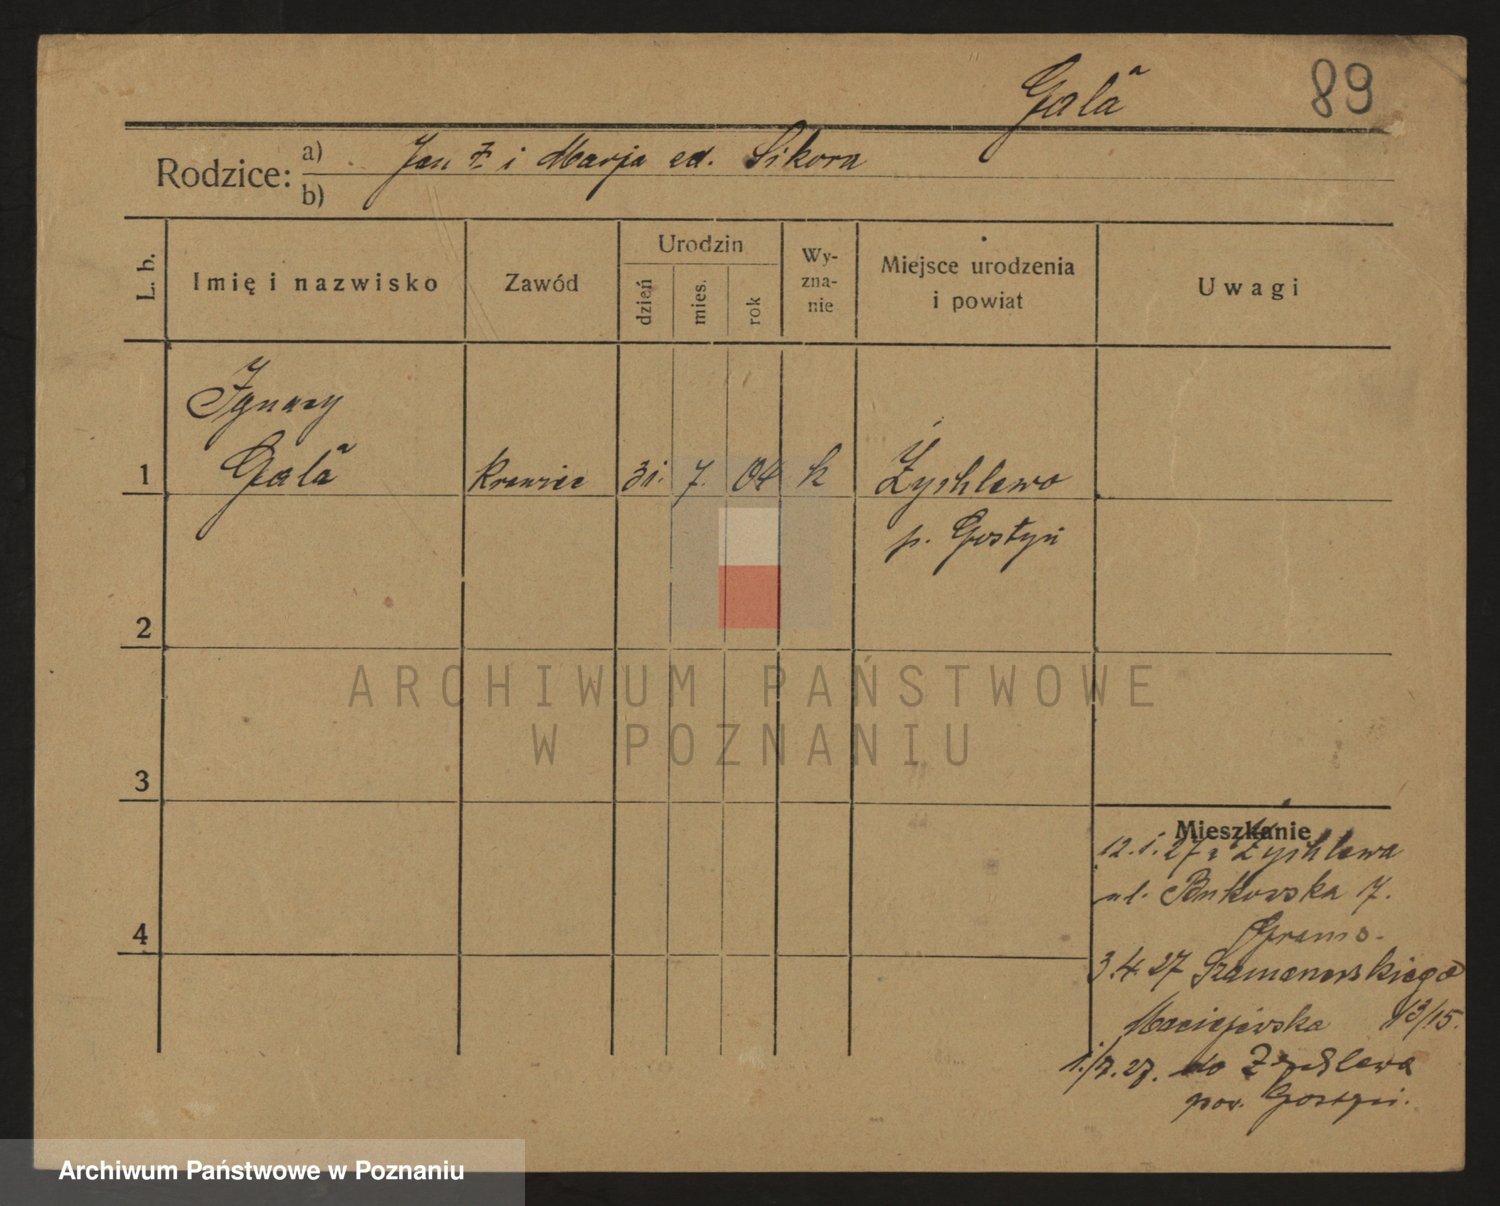 Gala
89
Rodzice: a) Jan G. i Marja zd. Sikora
b)
L. b.
Imię i nazwisko
Zawód
Urodzin
dzień
mies.
rok
Wy-
zna-
nie
Miejsce urodzenia
i powiat
Uwagi
Ignacy
1 Gala krawiec 31. 7. 04 k Żychlewo
p. Gostyń
2
3
4
Mieszkanie
12.1.27 z Żychlewa
ul. Bukowska 7.
3.4.27 Szamarzewskiego
13/15.
1./7.27. do Żychlewa
pow. Gostyń.
ARCHIWUM PAŃSTWOWE
W POZNANIU
Archiwum Państwowe w Poznaniu